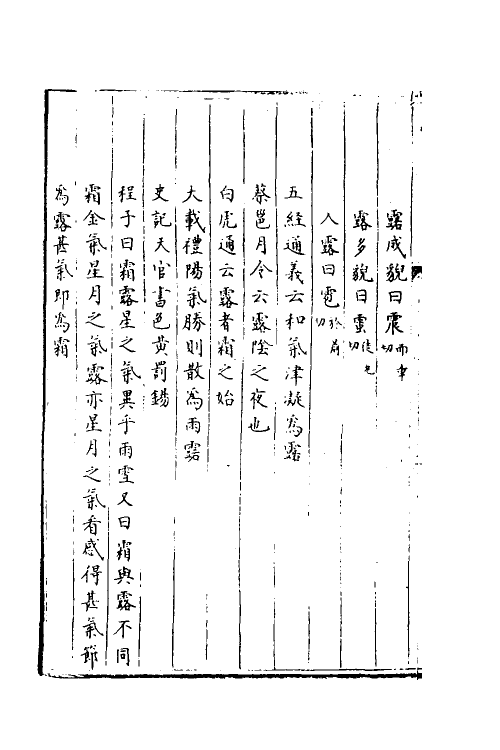 露成貌曰震而章切
露多貌曰𩃞徒九切
人露曰𩂣於前切
五經通義云和氣津凝為露
蔡邕月令云露陰之夜也
白虎通云露者霜之始
大載禮陽氣勝則散為雨露
史記天官書色黃罰錫
程子曰霜露星之氣異乎雨雪又曰霜與露不同
霜金氣星月之氣露亦星月之氣看感得甚氣節
為露甚氣即為霜